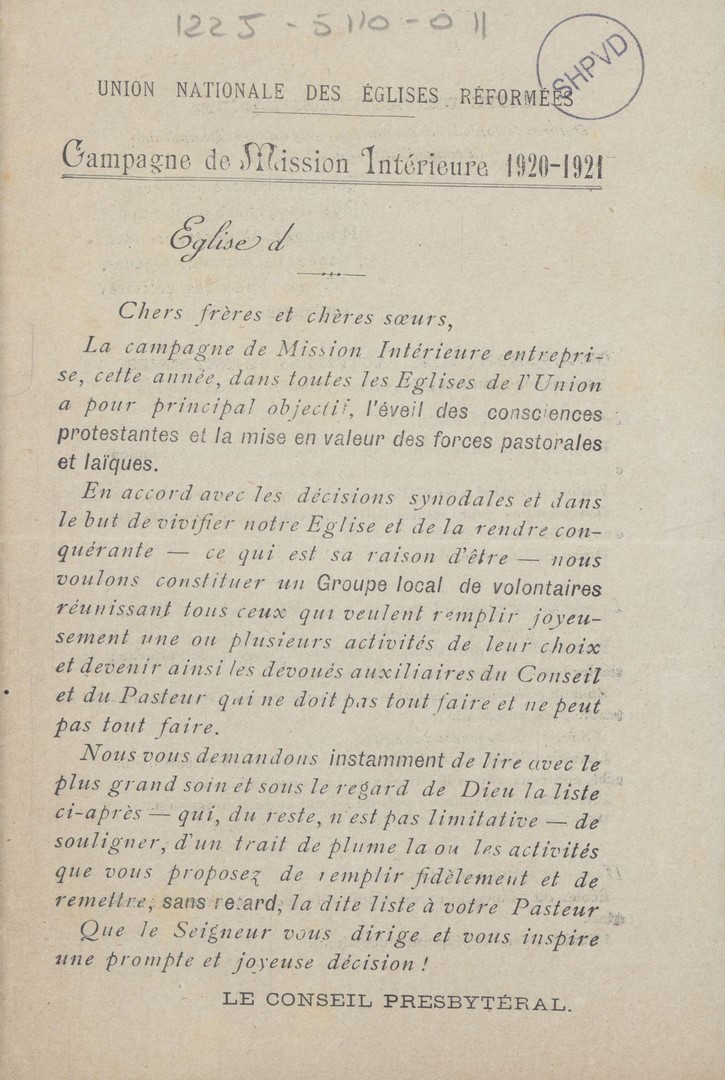 1225-5110-011
SHPVD
UNION NATIONALE DES ÉGLISES RÉFORMÉES
Campagne de Mission Intérieure 1920-1921
Eglise d
Chers frères et chères sœurs,
La campagne de Mission Intérieure entrepri-
se, cette année, dans toutes les Eglises de l'Union
a pour principal objectif, l'éveil des consciences
protestantes et la mise en valeur des forces pastorales
et laïques.
En accord avec les décisions synodales et dans
le but de vivifier notre Eglise et de la rendre con-
quérante — ce qui est sa raison d'être — nous
voulons constituer un Groupe local de volontaires
réunissant tous ceux qui veulent remplir joyeu-
sement une ou plusieurs activités de leur choix
et devenir ainsi les dévoués auxiliaires du Conseil
et du Pasteur qui ne doit pas tout faire et ne peut
pas tout faire.
Nous vous demandons instamment de lire avec le
plus grand soin et sous le regard de Dieu la liste
ci-après — qui, du reste, n'est pas limitative — de
souligner, d'un trait de plume la ou les activités
que vous proposez de remplir fidèlement et de
remettre, sans retard, la dite liste à votre Pasteur
Que le Seigneur vous dirige et vous inspire
une prompte et joyeuse décision !
LE CONSEIL PRESBYTÉRAL.